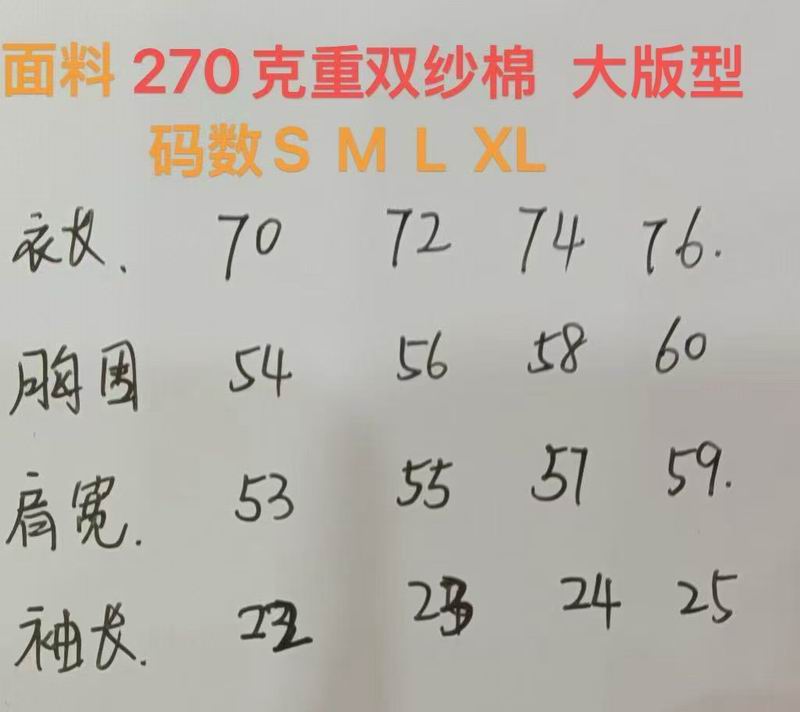 面料 270克重双纱棉 大版型
码数S M L XL
衣长. 70 72 74 76.
胸围 54 56 58 60
肩宽. 53 55 57 59.
袖长. 22 23 24 25